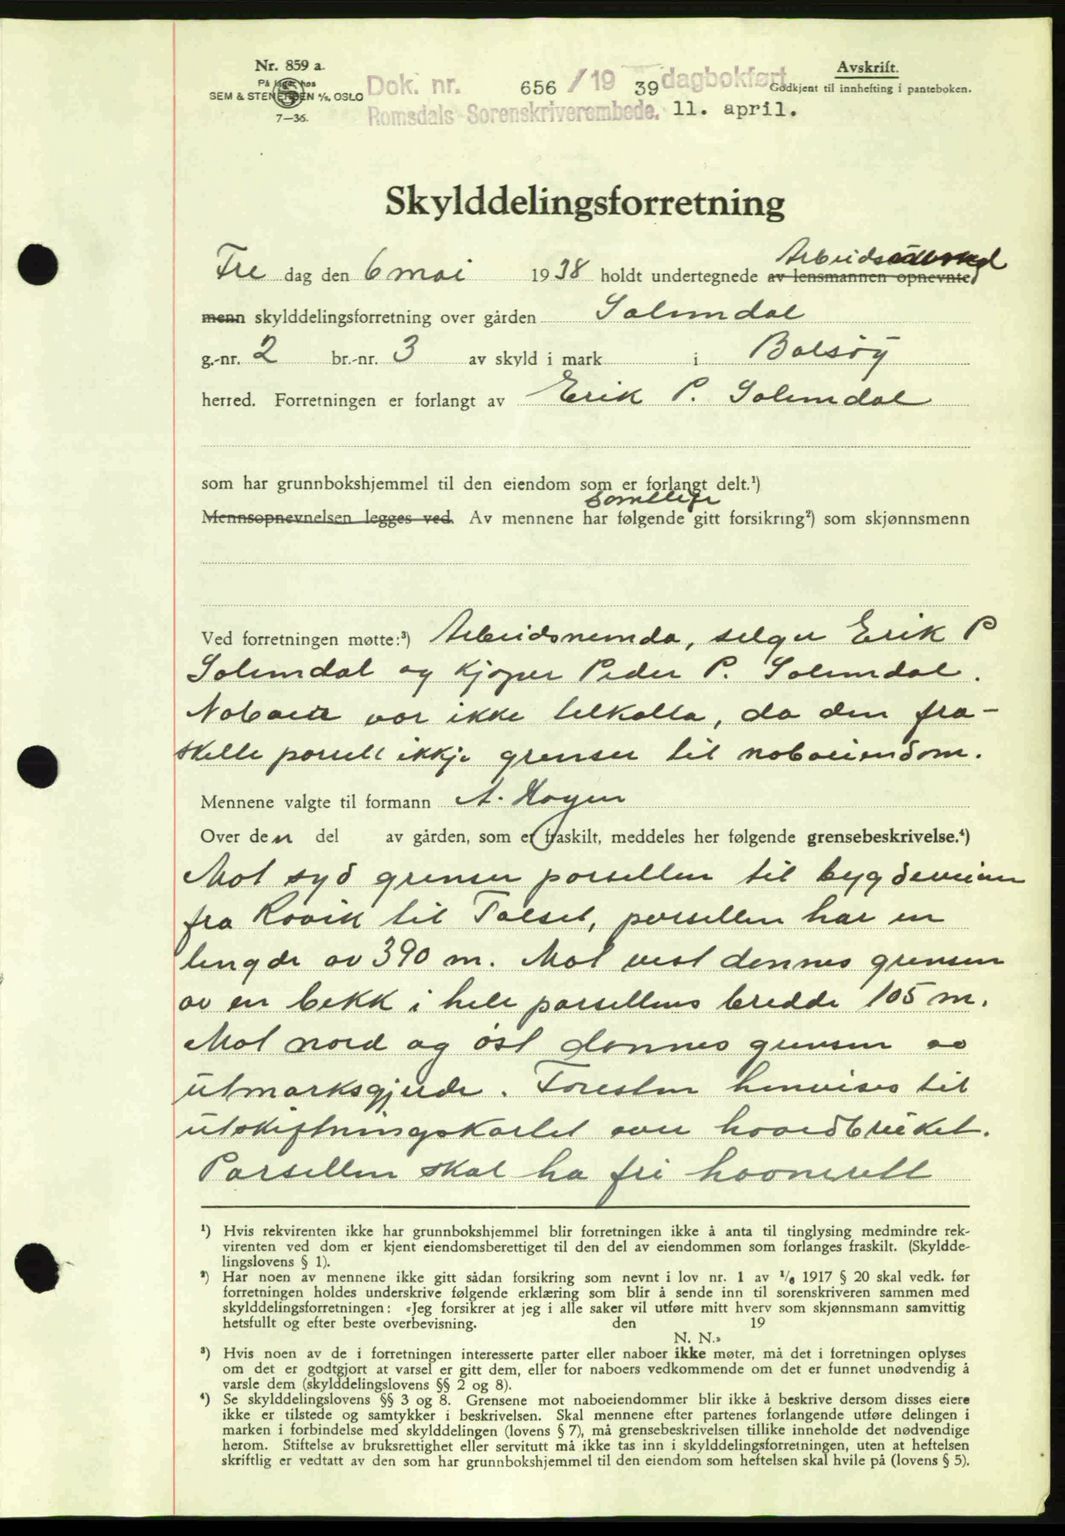 Nr. 859 a.
På lager hos
SEM & STENERSEN A/S, OSLO
7—36.
Dok. nr. 656 / 19 39 dagbokført
Romsdals Sorenskriverembede. 11. april.
Avskrift.
Godkjent til innhefting i panteboken.
Skylddelingsforretning
Fre dag den 6 mai 1938 holdt undertegnede av lensmannen opnevnte
menn skylddelingsforretning over gården Solemdal
g.-nr. 2 br.-nr. 3 av skyld i mark i Bolsöy
herred. Forretningen er forlangt av Erik P. Solemdal
som har grunnbokshjemmel til den eiendom som er forlangt delt.¹)
samtlige
Mennsopnevnelsen legges ved. Av mennene har følgende gitt forsikring²) som skjønnsmenn
Ved forretningen møtte:³) Arbeidsnemda, selger Erik P
Solemdal og kjöper Peder P. Solemdal.
Naboer var ikke tilkalla, da den fra-
skilte parsell ikkje grenser til naboeiendom.
Mennene valgte til formann A. Hagen
Over den del av gården, som er fraskilt, meddeles her følgende grensebeskrivelse.⁴)
Mot syd grenser parsellen til bygdeveien
fra Røvik til Talset, parsellen har en
lengde av 390 m. Mot vest dannes grensen
av en bekk i hele parsellens bredde 105 m.
Mot nord og öst dannes grensen av
utmarksgjerde. Foresten henvises til
utskiftningskartet over hovedbruket.
Parsellen skal ha fri havnerett
¹) Hvis rekvirenten ikke har grunnbokshjemmel blir forretningen ikke å anta til tinglysing medmindre rek-
virenten ved dom er kjent eiendomsberettiget til den del av eiendommen som forlanges fraskilt. (Skyldde-
lingslovens § 1).
²) Har noen av mennene ikke gitt sådan forsikring som nevnt i lov nr. 1 av 1/6 1917 § 20 skal vedk. før
forretningen holdes underskrive følgende erklæring som blir å sende inn til sorenskriveren sammen med
skylddelingsforretningen: «Jeg forsikrer at jeg i alle saker vil utføre mitt hverv som skjønnsmann samvittig
hetsfullt og efter beste overbevisning. den 19
N. N.»
³) Hvis noen av de i forretningen interesserte parter eller naboer ikke møter, må det i forretningen oplyses
om det er godtgjort at varsel er gitt dem, eller for naboers vedkommende om det er funnet unødvendig å
varsle dem (skylddelingslovens §§ 2 og 8).
⁴) Se skylddelingslovens §§ 3 og 8. Grensene mot naboeiendommer blir ikke å beskrive dersom disses eiere
ikke er tilstede og samtykker i beskrivelsen. Skal mennene efter partenes forlangende utføre delingen i
marken i forbindelse med skylddelingen (lovens § 7), må grensebeskrivelsen tillike inneholde det nødvendige
herom. Stiftelse av bruksrettighet eller servitutt må ikke tas inn i skylddelingsforretningen, uten at heftelsen
skriftlig er vedtatt av den som har grunnbokshjemmel til den eiendom som heftelsen skal hvile på (lovens § 5).